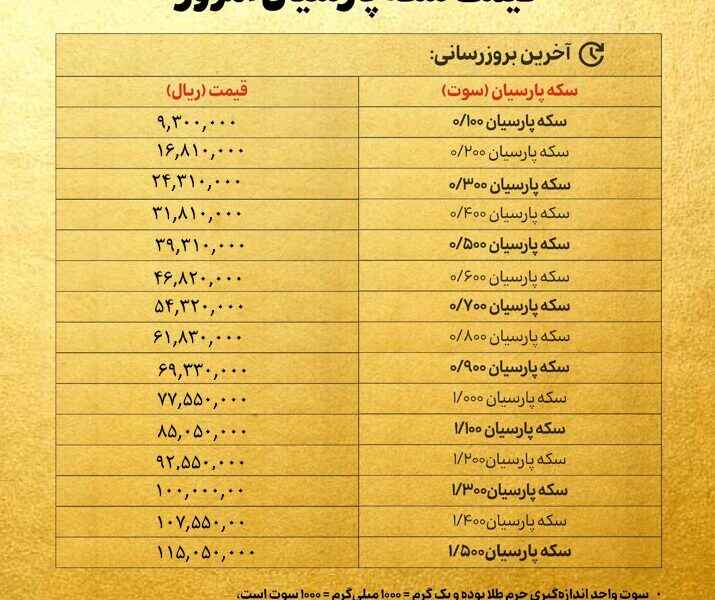 قیمت سکه پارسیان امروز
آخرین بروزرسانی:
سکه پارسیان (سوت) قیمت (ریال)
سکه پارسیان ۰/۱۰۰ ۹,۳۰۰,۰۰۰
سکه پارسیان ۰/۲۰۰ ۱۶,۸۱۰,۰۰۰
سکه پارسیان ۰/۳۰۰ ۲۴,۳۱۰,۰۰۰
سکه پارسیان ۰/۴۰۰ ۳۱,۸۱۰,۰۰۰
سکه پارسیان ۰/۵۰۰ ۳۹,۳۱۰,۰۰۰
سکه پارسیان ۰/۶۰۰ ۴۶,۸۲۰,۰۰۰
سکه پارسیان ۰/۷۰۰ ۵۴,۳۲۰,۰۰۰
سکه پارسیان ۰/۸۰۰ ۶۱,۸۳۰,۰۰۰
سکه پارسیان ۰/۹۰۰ ۶۹,۳۳۰,۰۰۰
سکه پارسیان ۱/۰۰۰ ۷۷,۵۵۰,۰۰۰
سکه پارسیان ۱/۱۰۰ ۸۵,۰۵۰,۰۰۰
سکه پارسیان۱/۲۰۰ ۹۲,۵۵۰,۰۰۰
سکه پارسیان۱/۳۰۰ ۱۰۰,۰۰۰,۰۰
سکه پارسیان۱/۴۰۰ ۱۰۷,۵۵۰,۰۰
سکه پارسیان۱/۵۰۰ ۱۱۵,۰۵۰,۰۰۰
• سوت واحد اندازه‌گیری جرم طلا بوده و یک گرم = ۱۰۰۰ میلی‌گرم = ۱۰۰۰ سوت است.